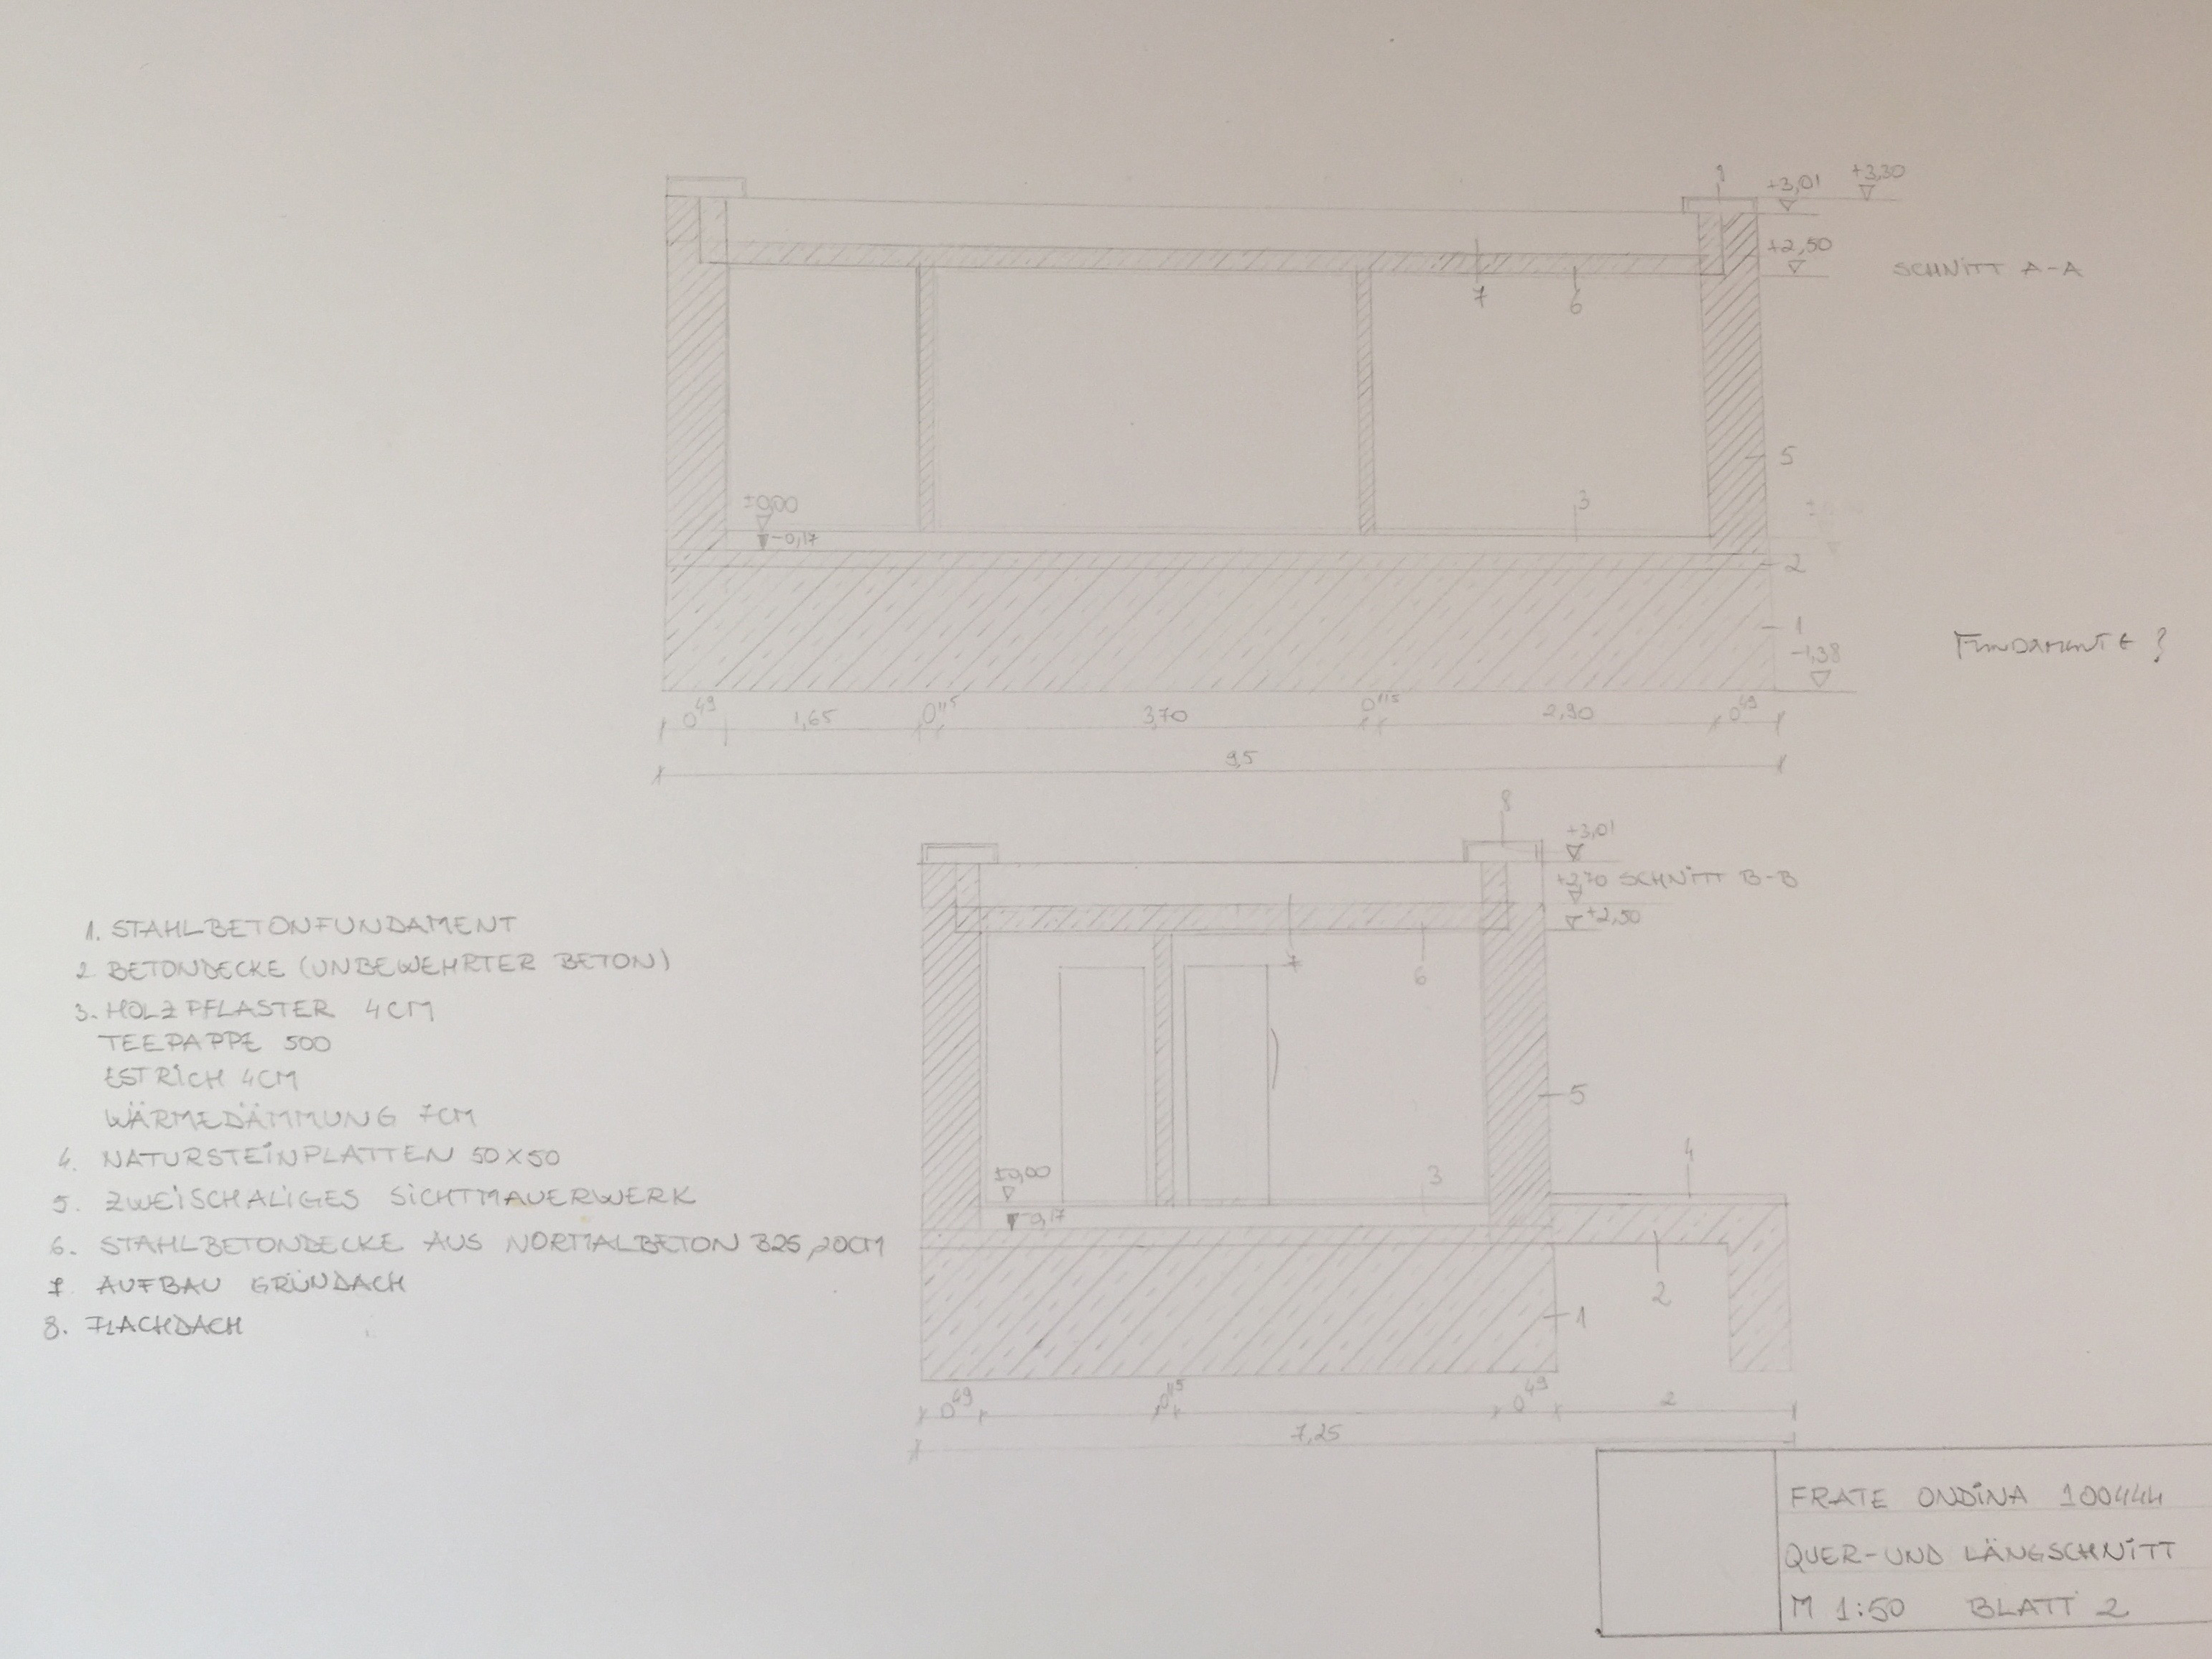 8
+3,01
+3,30
+2,50
SCHNITT A-A
7
6
5
±0,00
-0,17
3
2
1
-1,38
FUNDAMENTE?
0⁴⁹ 1,65 0¹¹⁵ 3,70 0¹¹⁵ 2,90 0⁴⁹
9,5
8
+3,01
+2,70 SCHNITT B-B
+2,50
7
6
5
4
±0,00
3
-0,17
2
1
0⁴⁹ 0¹¹⁵ 0⁴⁹ 2
7,25
1. STAHLBETONFUNDAMENT
2. BETONDECKE (UNBEWEHRTER BETON)
3. HOLZPFLASTER 4CM
TEEPAPPE 500
ESTRICH 4CM
WÄRMEDÄMMUNG 7CM
4. NATURSTEINPLATTEN 50X50
5. ZWEISCHALIGES SICHTMAUERWERK
6. STAHLBETONDECKE AUS NORMALBETON B25, 20CM
7. AUFBAU GRÜNDACH
8. FLACHDACH
FRATE ONDINA 100444
QUER-UND LÄNGSCHNITT
M 1:50 BLATT 2